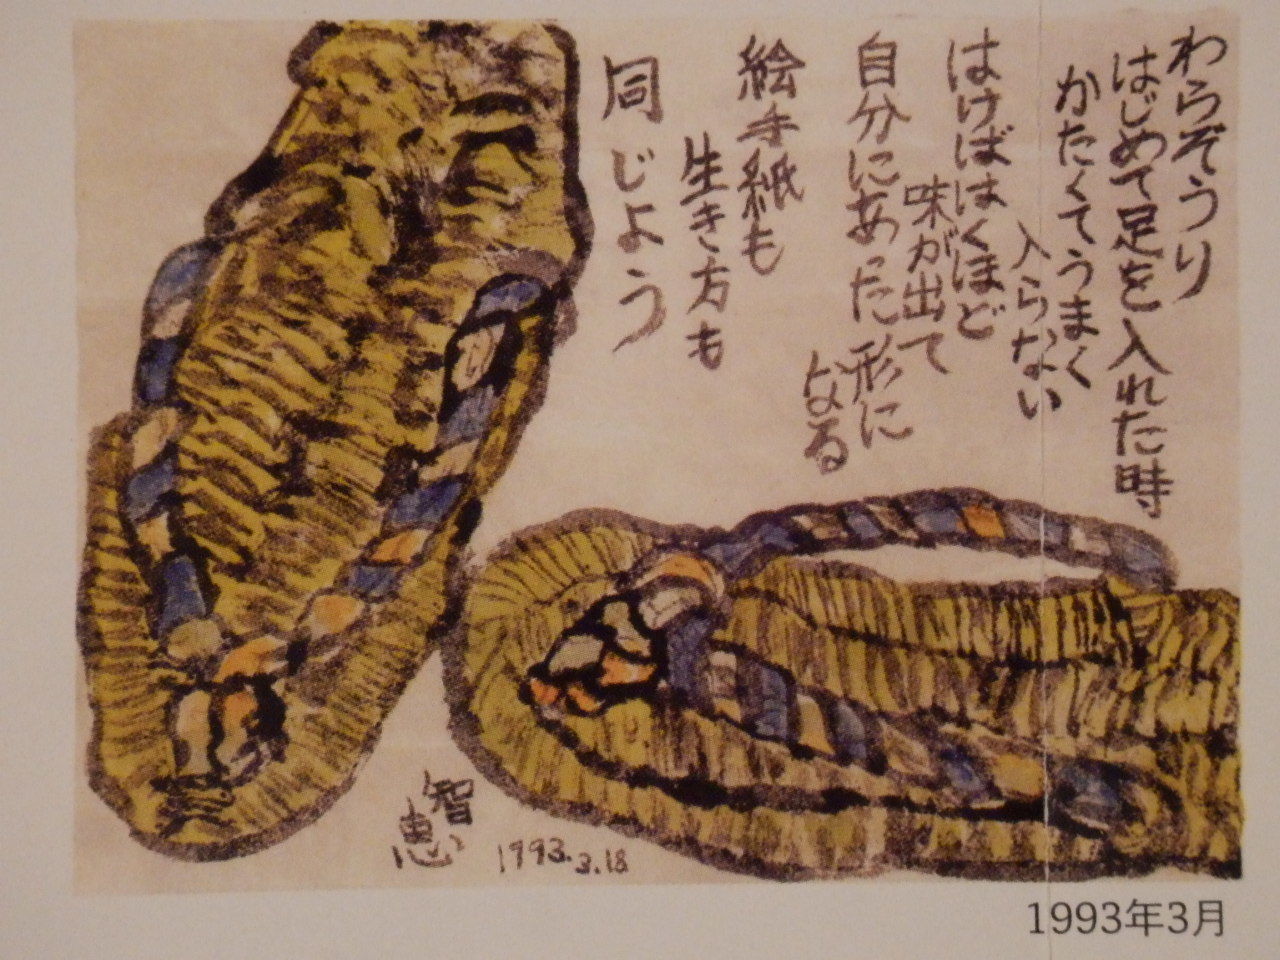 わらぞうり
はじめて足を入れた時
かたくてうまく
入らない
はけばはくほど
味が出て
自分にあった形に
なる
絵手紙も
生き方も
同じよう
智恵
1993.3.18
1993年3月